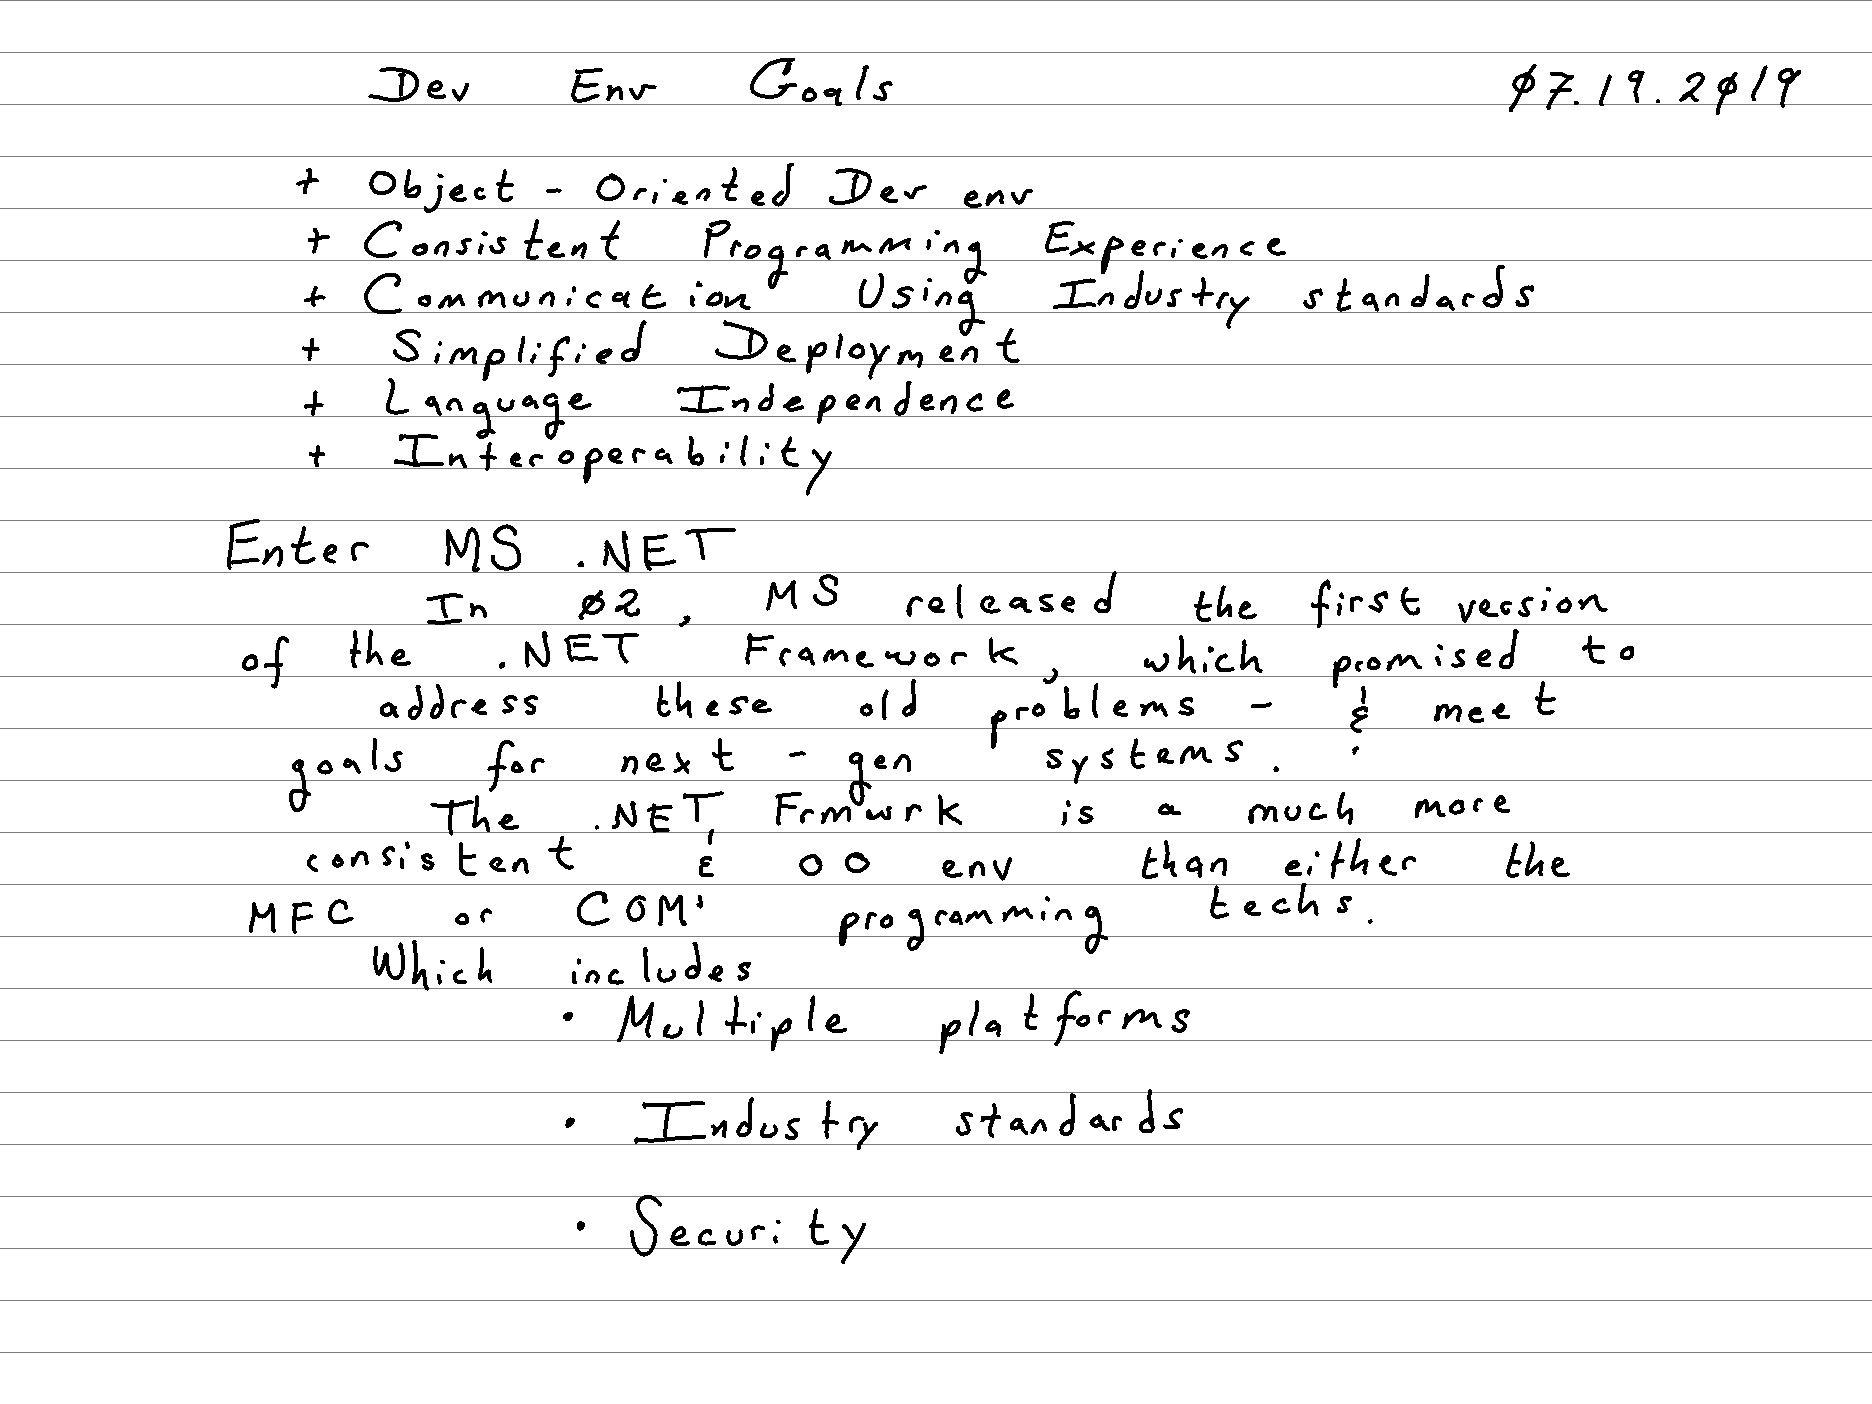 Dev Env Goals 07.19.2019
+ Object - Oriented Dev env
+ Consistent Programming Experience
+ Communication Using Industry standards
+ Simplified Deployment
+ Language Independence
+ Interoperability
Enter MS .NET
In 02, MS released the first version
of the .NET Framework, which promised to
address these old problems - & meet
goals for next - gen systems.
The .NET Frmwrk is a much more
consistent & OO env than either the
MFC or COM programming techs.
Which includes
• Multiple platforms
• Industry standards
• Security